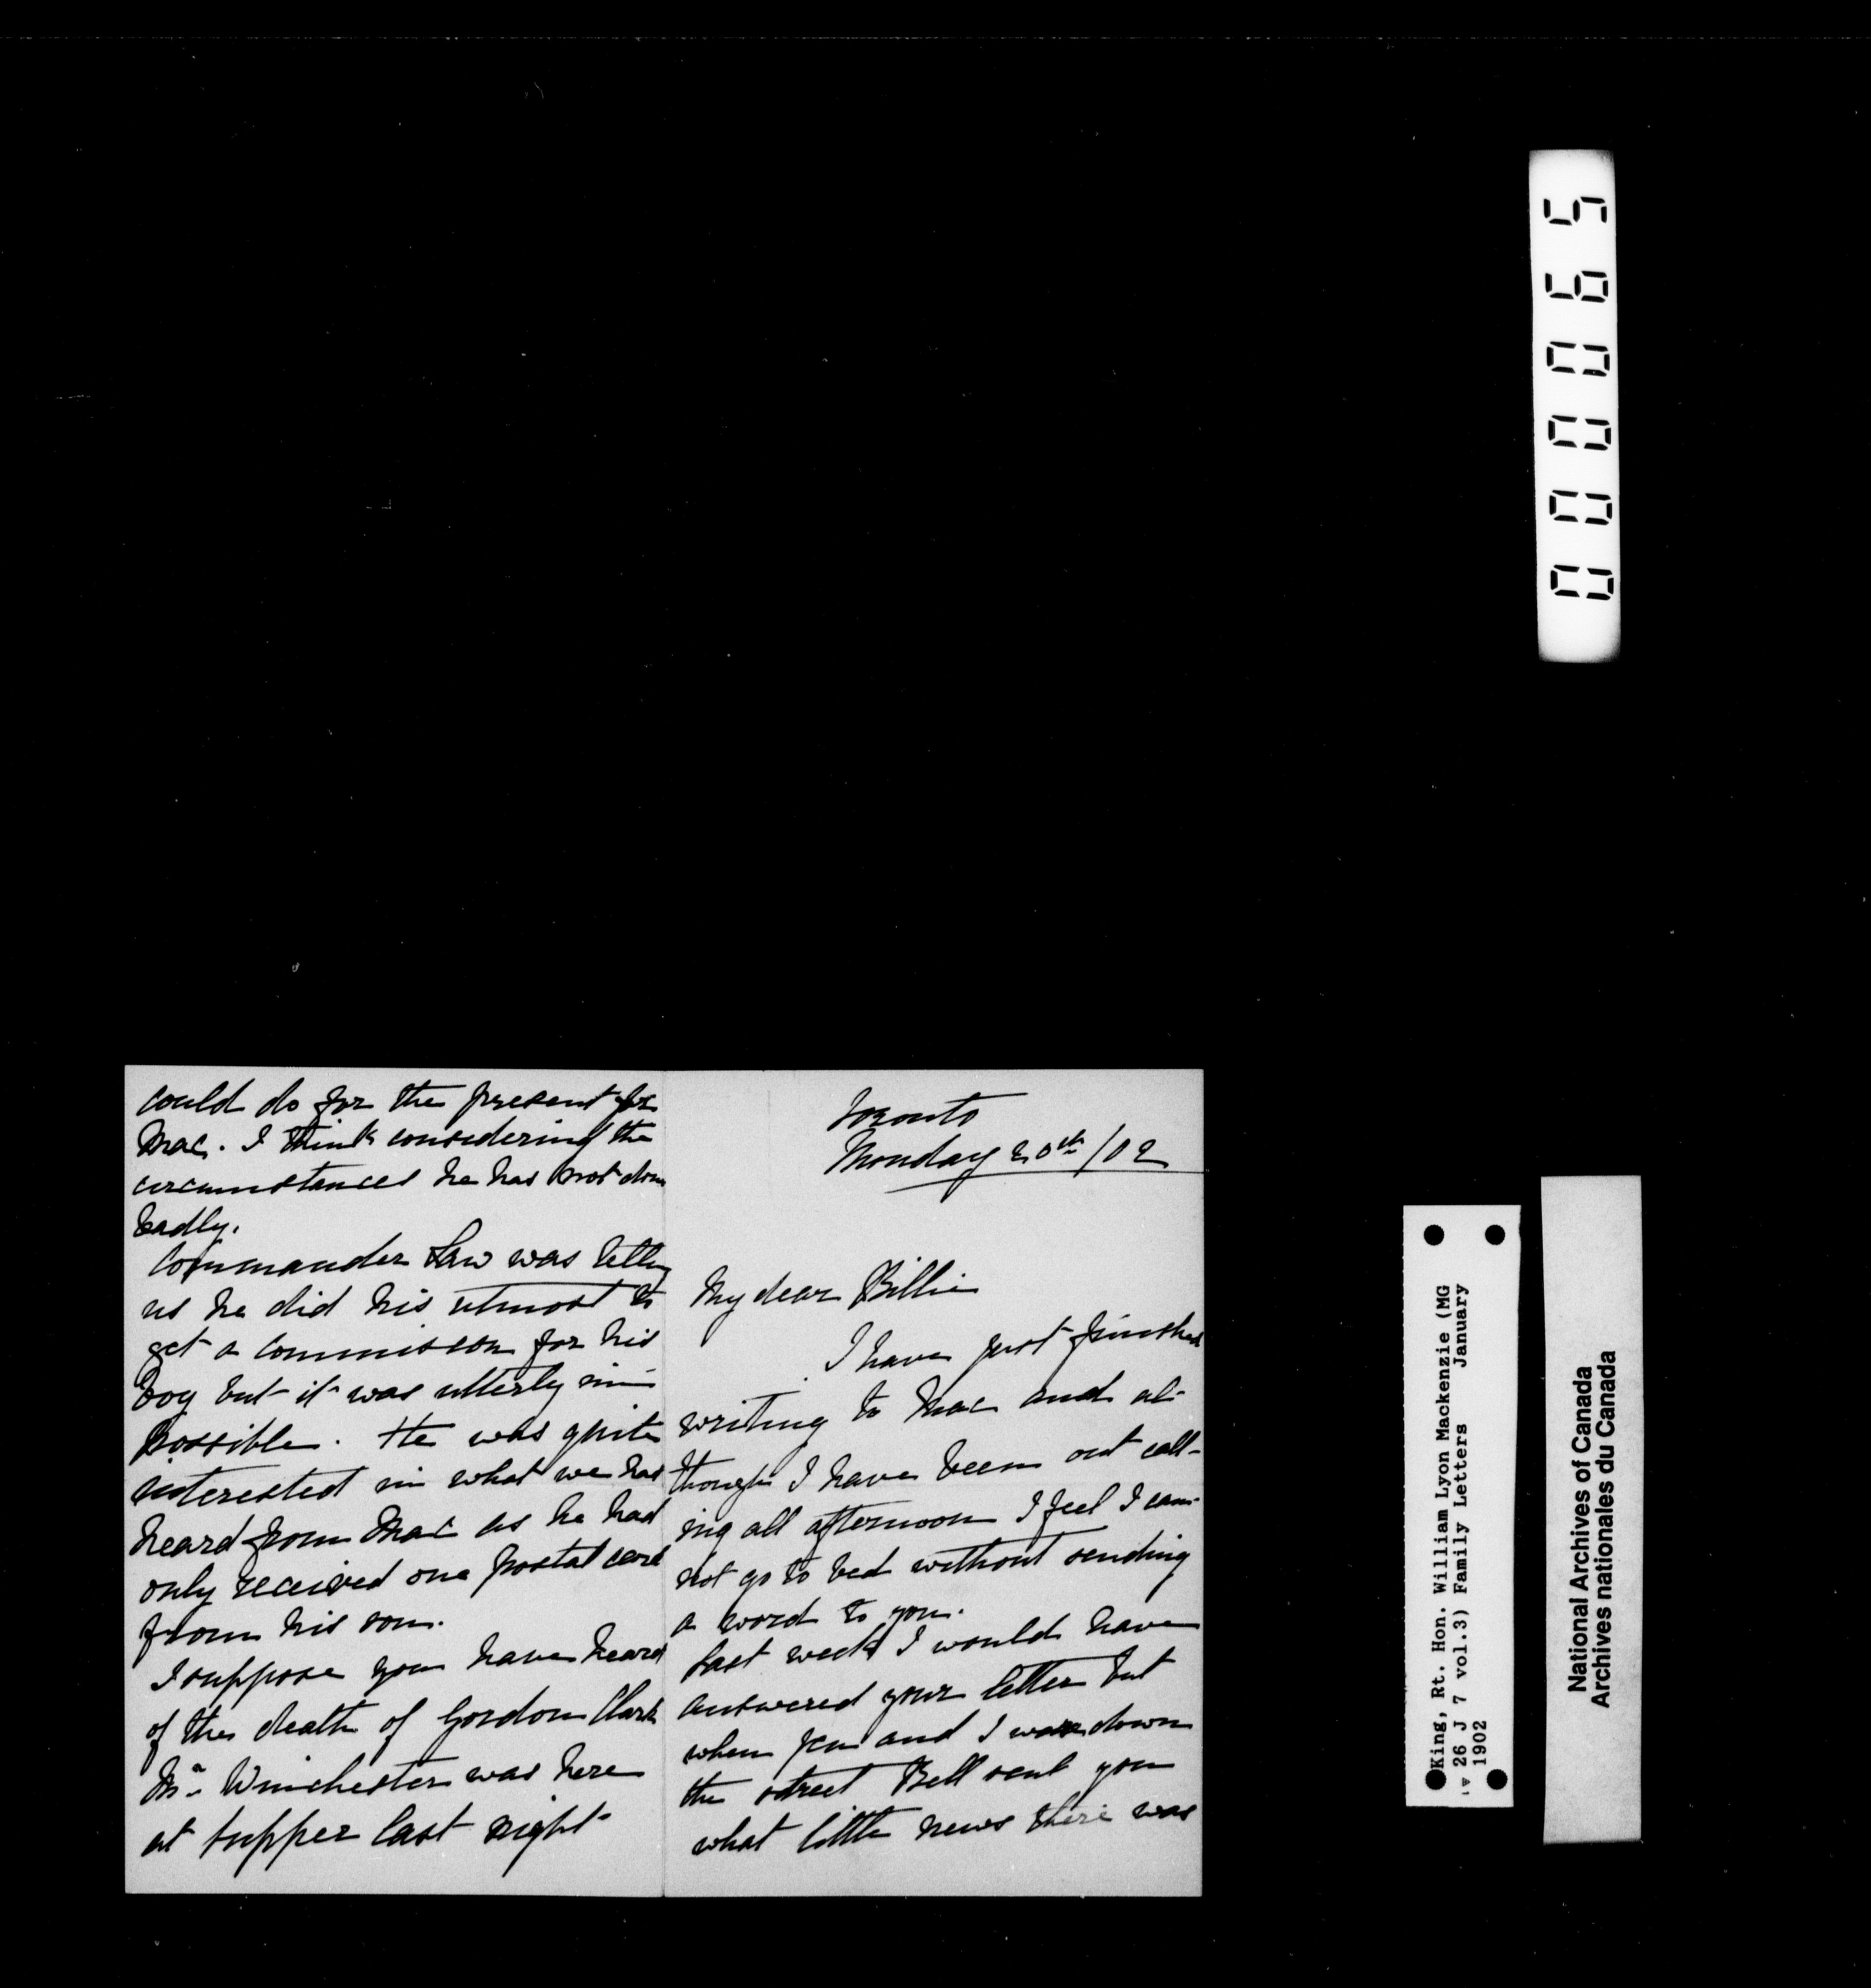 could do for the present for
Mac. I think considering the
circumstances he has not done
badly.
Commander Law was telling
us he did his utmost to
get a commission for his
boy but it was utterly im-
possible. He was quite
interested in what we had
heard from Mac as he had
only received one postal card
from his son.
I suppose you have heard
of the death of Gordon Clark
Mr Winchester was here
at supper last night
Toronto
Monday 20th/02
My dear Billie
I have just finished
writing to Mac and al-
though I have been out call-
ing all afternoon I feel I can-
not go to bed without sending
a word to you.
Last week I would have
answered your letter but
when Jen and I were down
the street Bell sent you
what little news there was
000065
King, Rt. Hon. William Lyon Mackenzie (MG
26 J 7 vol.3) Family Letters January
1902
National Archives of Canada
Archives nationales du Canada